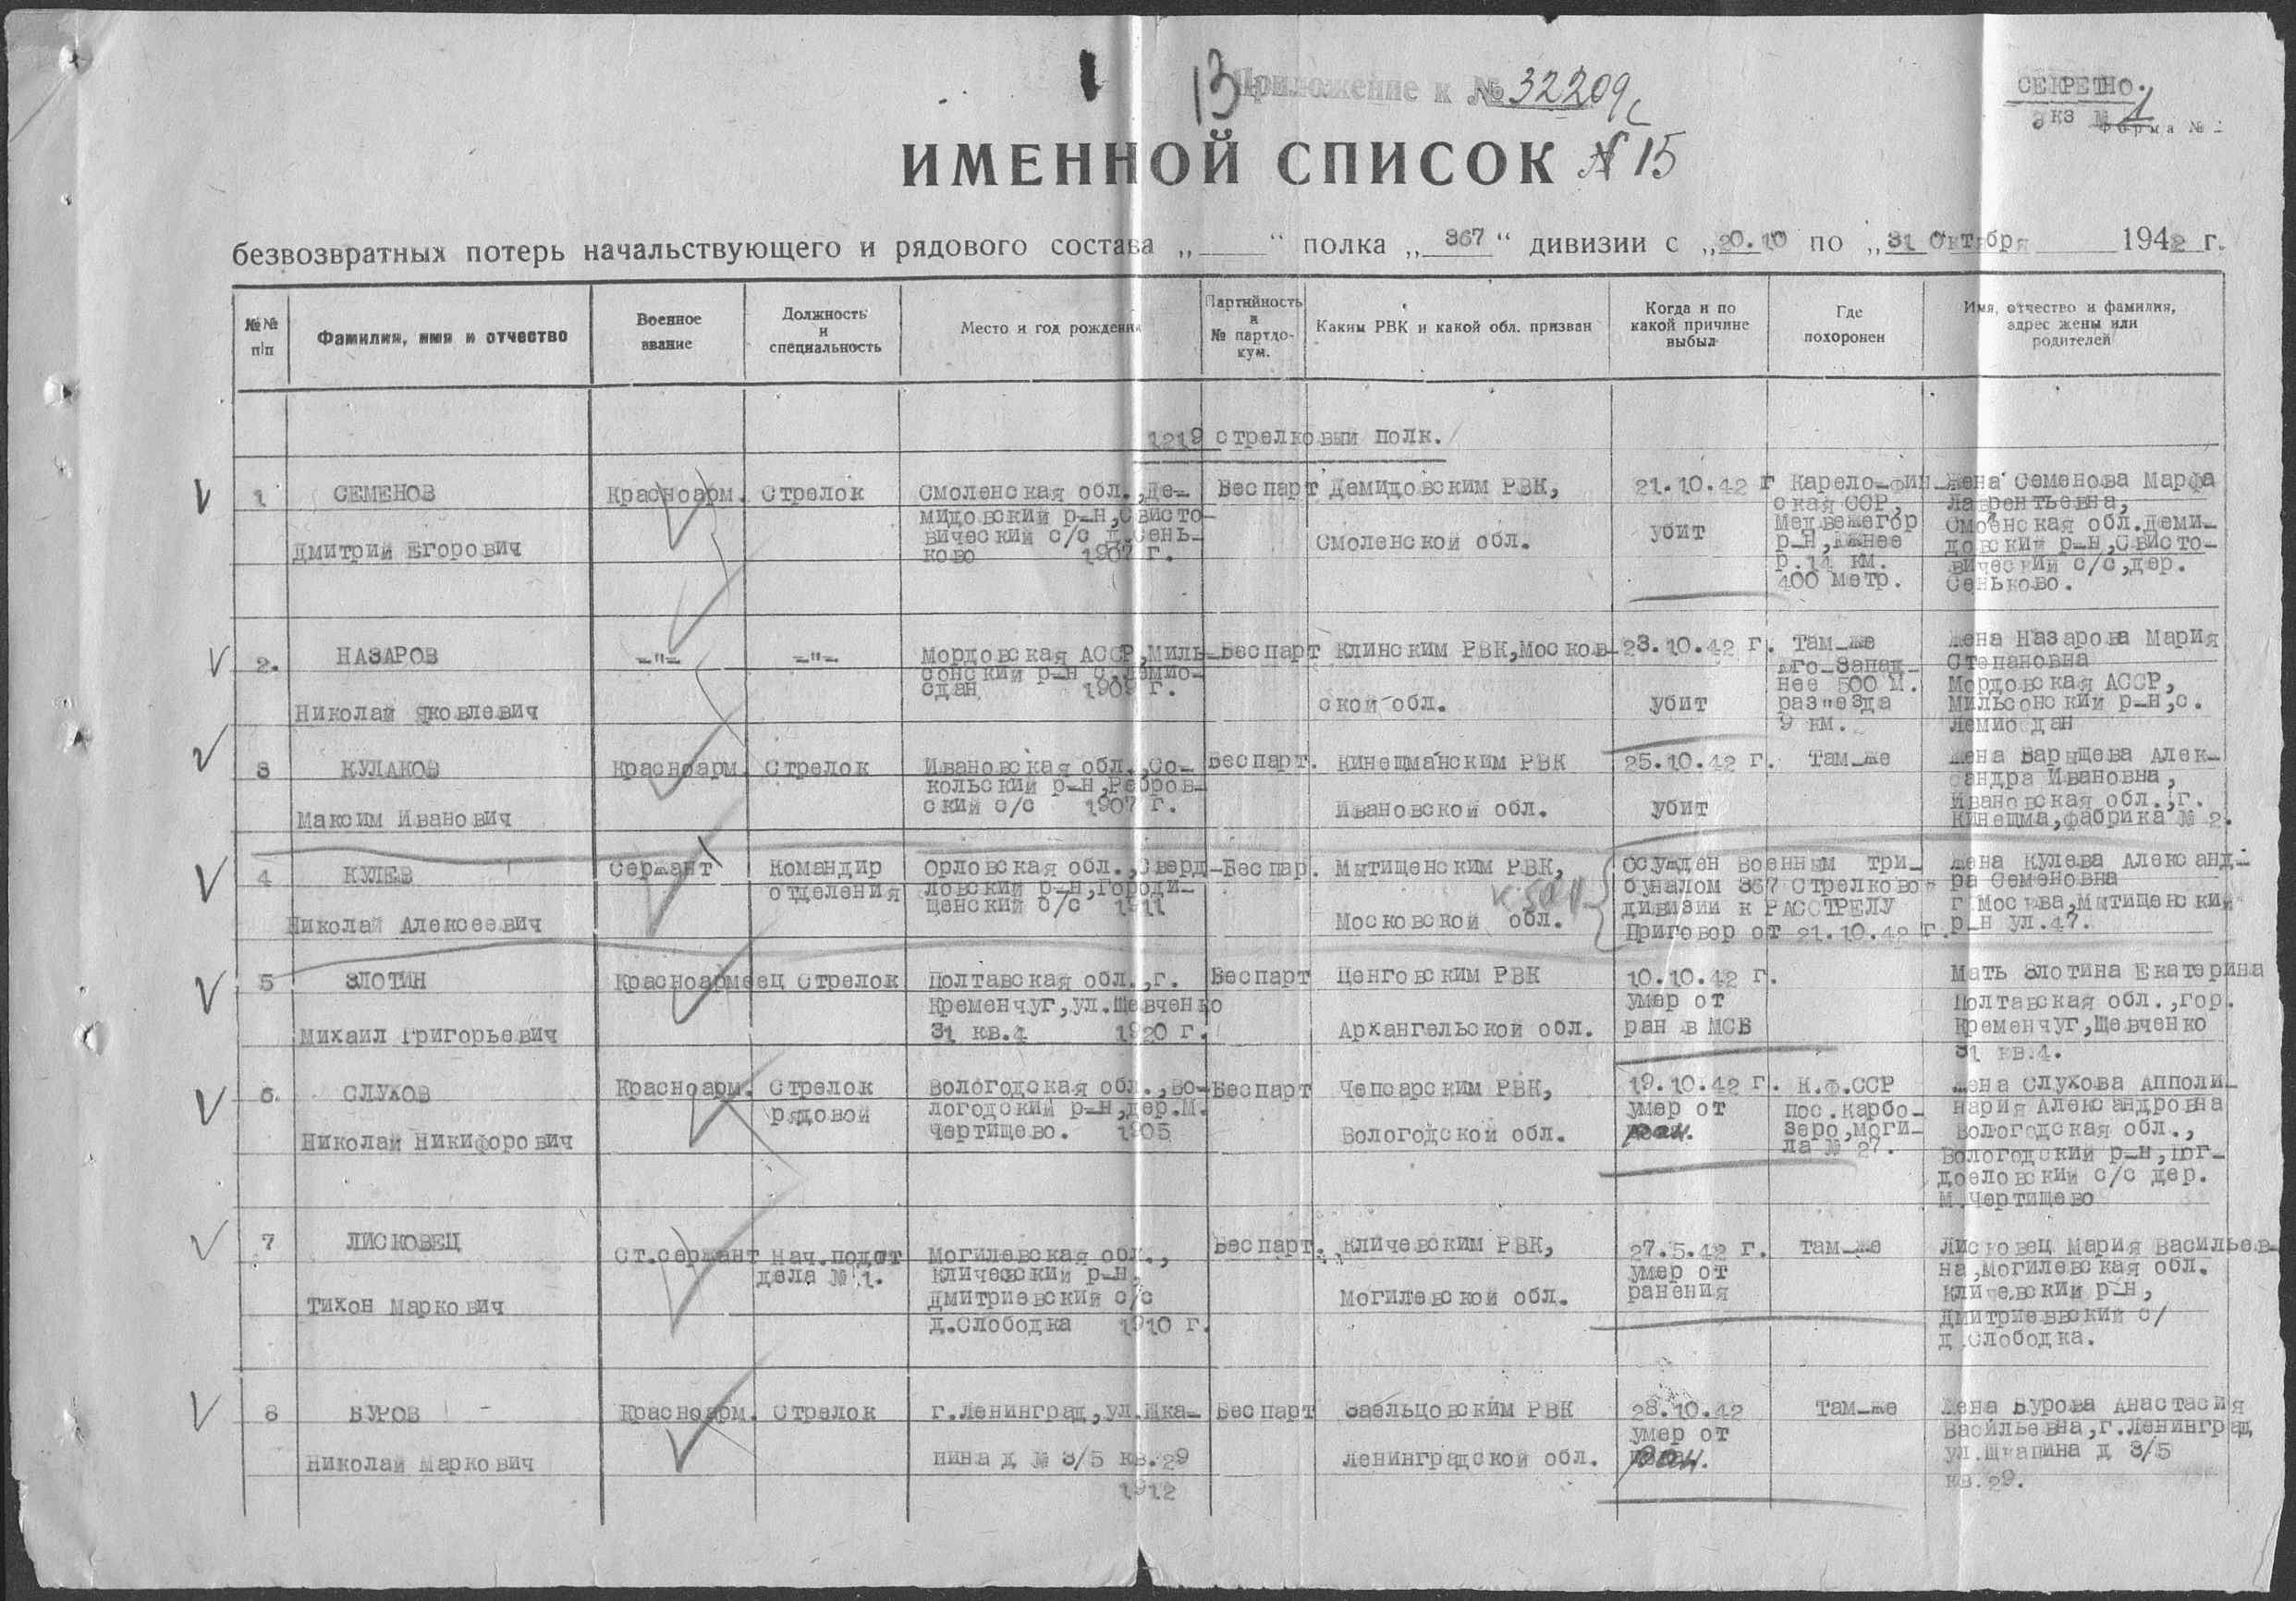 13
Приложение к № 32209с
СЕКРЕТНО.
экз № 1
Форма №
ИМЕННОЙ СПИСОК № 15
безвозвратных потерь начальствующего и рядового состава „ “ полка „ 367 “ дивизии с „20.10 по „31 Октября 1942 г.
№№ п/п
Фамилия, имя и отчество
Военное звание
Должность и специальность
Место и год рождения
Партийность и № партдокум.
Каким РВК и какой обл. призван
Когда и по какой причине выбыл
Где похоронен
Имя, отчество и фамилия, адрес жены или родителей
1219 стрелковый полк.
1
СЕМЕНОВ
Дмитрий Егорович
Красноарм.
Стрелок
Смоленская обл., Де-
мидовский р-н, Свисто-
вический с/с д.Сень-
ково 1907 г.
Беспарт
Демидовским РВК,
Смоленской обл.
21.10.42 г
убит
Карело-фин-
ская ССР,
Медвежегор
р-н, южнее
р.14 км.
400 метр.
жена Семенова Марфа
Лаврентьевна,
Смоленская обл.Деми-
довский р-н,Свисто-
вический с/с,дер.
Сеньково.
2.
НАЗАРОВ
Николай Яковлевич
-"-
-"-
Мордовская АССР,Миль-
сонский р-н с.Лемио-
сдан 1909 г.
Беспарт
Клинским РВК,Москов-
ской обл.
23.10.42 г.
убит
Там-же
юго-запад-
нее 500 м.
раз"езда
9 км.
жена Назарова Мария
Степановна
Мордовская АССР,
Мильсонский р-н,с.
Лемиосдан
3
КУЛАКОВ
Максим Иванович
Красноарм.
Стрелок
Ивановская обл.,Со-
кольский р-н,Ребров-
ский с/с 1907 г.
Беспарт.
Кинешманским РВК
Ивановской обл.
25.10.42 г.
убит
Там-же
жена Барышева Алек-
сандра Ивановна,
Ивановская обл.,г.
Кинешма,фабрика № 2.
4
КУЛЕВ
Николай Алексеевич
Сержант
Командир
отделения
Орловская обл.,Сверд-
ловский р-н,Городи-
щенский с/с 1911
Беспар.
Мытищенским РВК,
Московской обл.
осужден военным три-
буналом 367 стрелковой
дивизии к РАССТРЕЛУ
Приговор от 21.10.42 г.
жена Кулева Александ-
ра Семеновна
г Москва,Мытищенский
р-н ул.47.
5
ЗЛОТИН
Михаил Григорьевич
Красноармеец
Стрелок
Полтавская обл.,г.
Кременчуг,ул.Шевченко
31 кв.4 1920 г.
Беспарт
Ценговским РВК
Архангельской обл.
10.10.42 г.
умер от
ран в МСБ
Мать Злотина Екатерина
Полтавская обл.,гор.
Кременчуг,Шевченко
31 кв.4.
6.
СЛУХОВ
Николай Никифорович
Красноарм.
Стрелок
рядовой
Вологодская обл.,Во-
логодский р-н,дер.М.
Чертищево. 1905
Беспарт
Чепсарским РВК,
Вологодской обл.
19.10.42 г.
умер от
ран.
К.Ф.ССР
пос.Карбо-
зеро,моги-
ла № 27.
жена Слухова Апполи-
нария Александровна
Вологодская обл.,
Вологодский р-н,Бог-
доеловский с/с дер.
М.Чертищево
7
ЛИСКОВЕЦ
Тихон Маркович
Ст.сержант
Нач.подот
дела № 1.
Могилевская обл.,
Кличевский р-н,
Дмитриевский с/с
д.Слободка 1910 г.
Беспарт.
Кличевским РВК,
Могилевской обл.
27.5.42 г.
умер от
ранения
там-же
Лисковец Мария Васильев-
на,Могилевская обл.
Кличевский р-н,
Дмитриевский с/
д.Слободка.
8
БУРОВ
Николай Маркович
Красноарм.
Стрелок
г.Ленинград,ул.Шка-
пина д № 3/5 кв.29
1912
Беспарт
Заельцовским РВК
Ленинградской обл.
28.10.42
умер от
ран.
Там-же
жена Бурова Анастасия
Васильевна,г.Ленинград
ул.Шкапина д 3/5
кв.29.